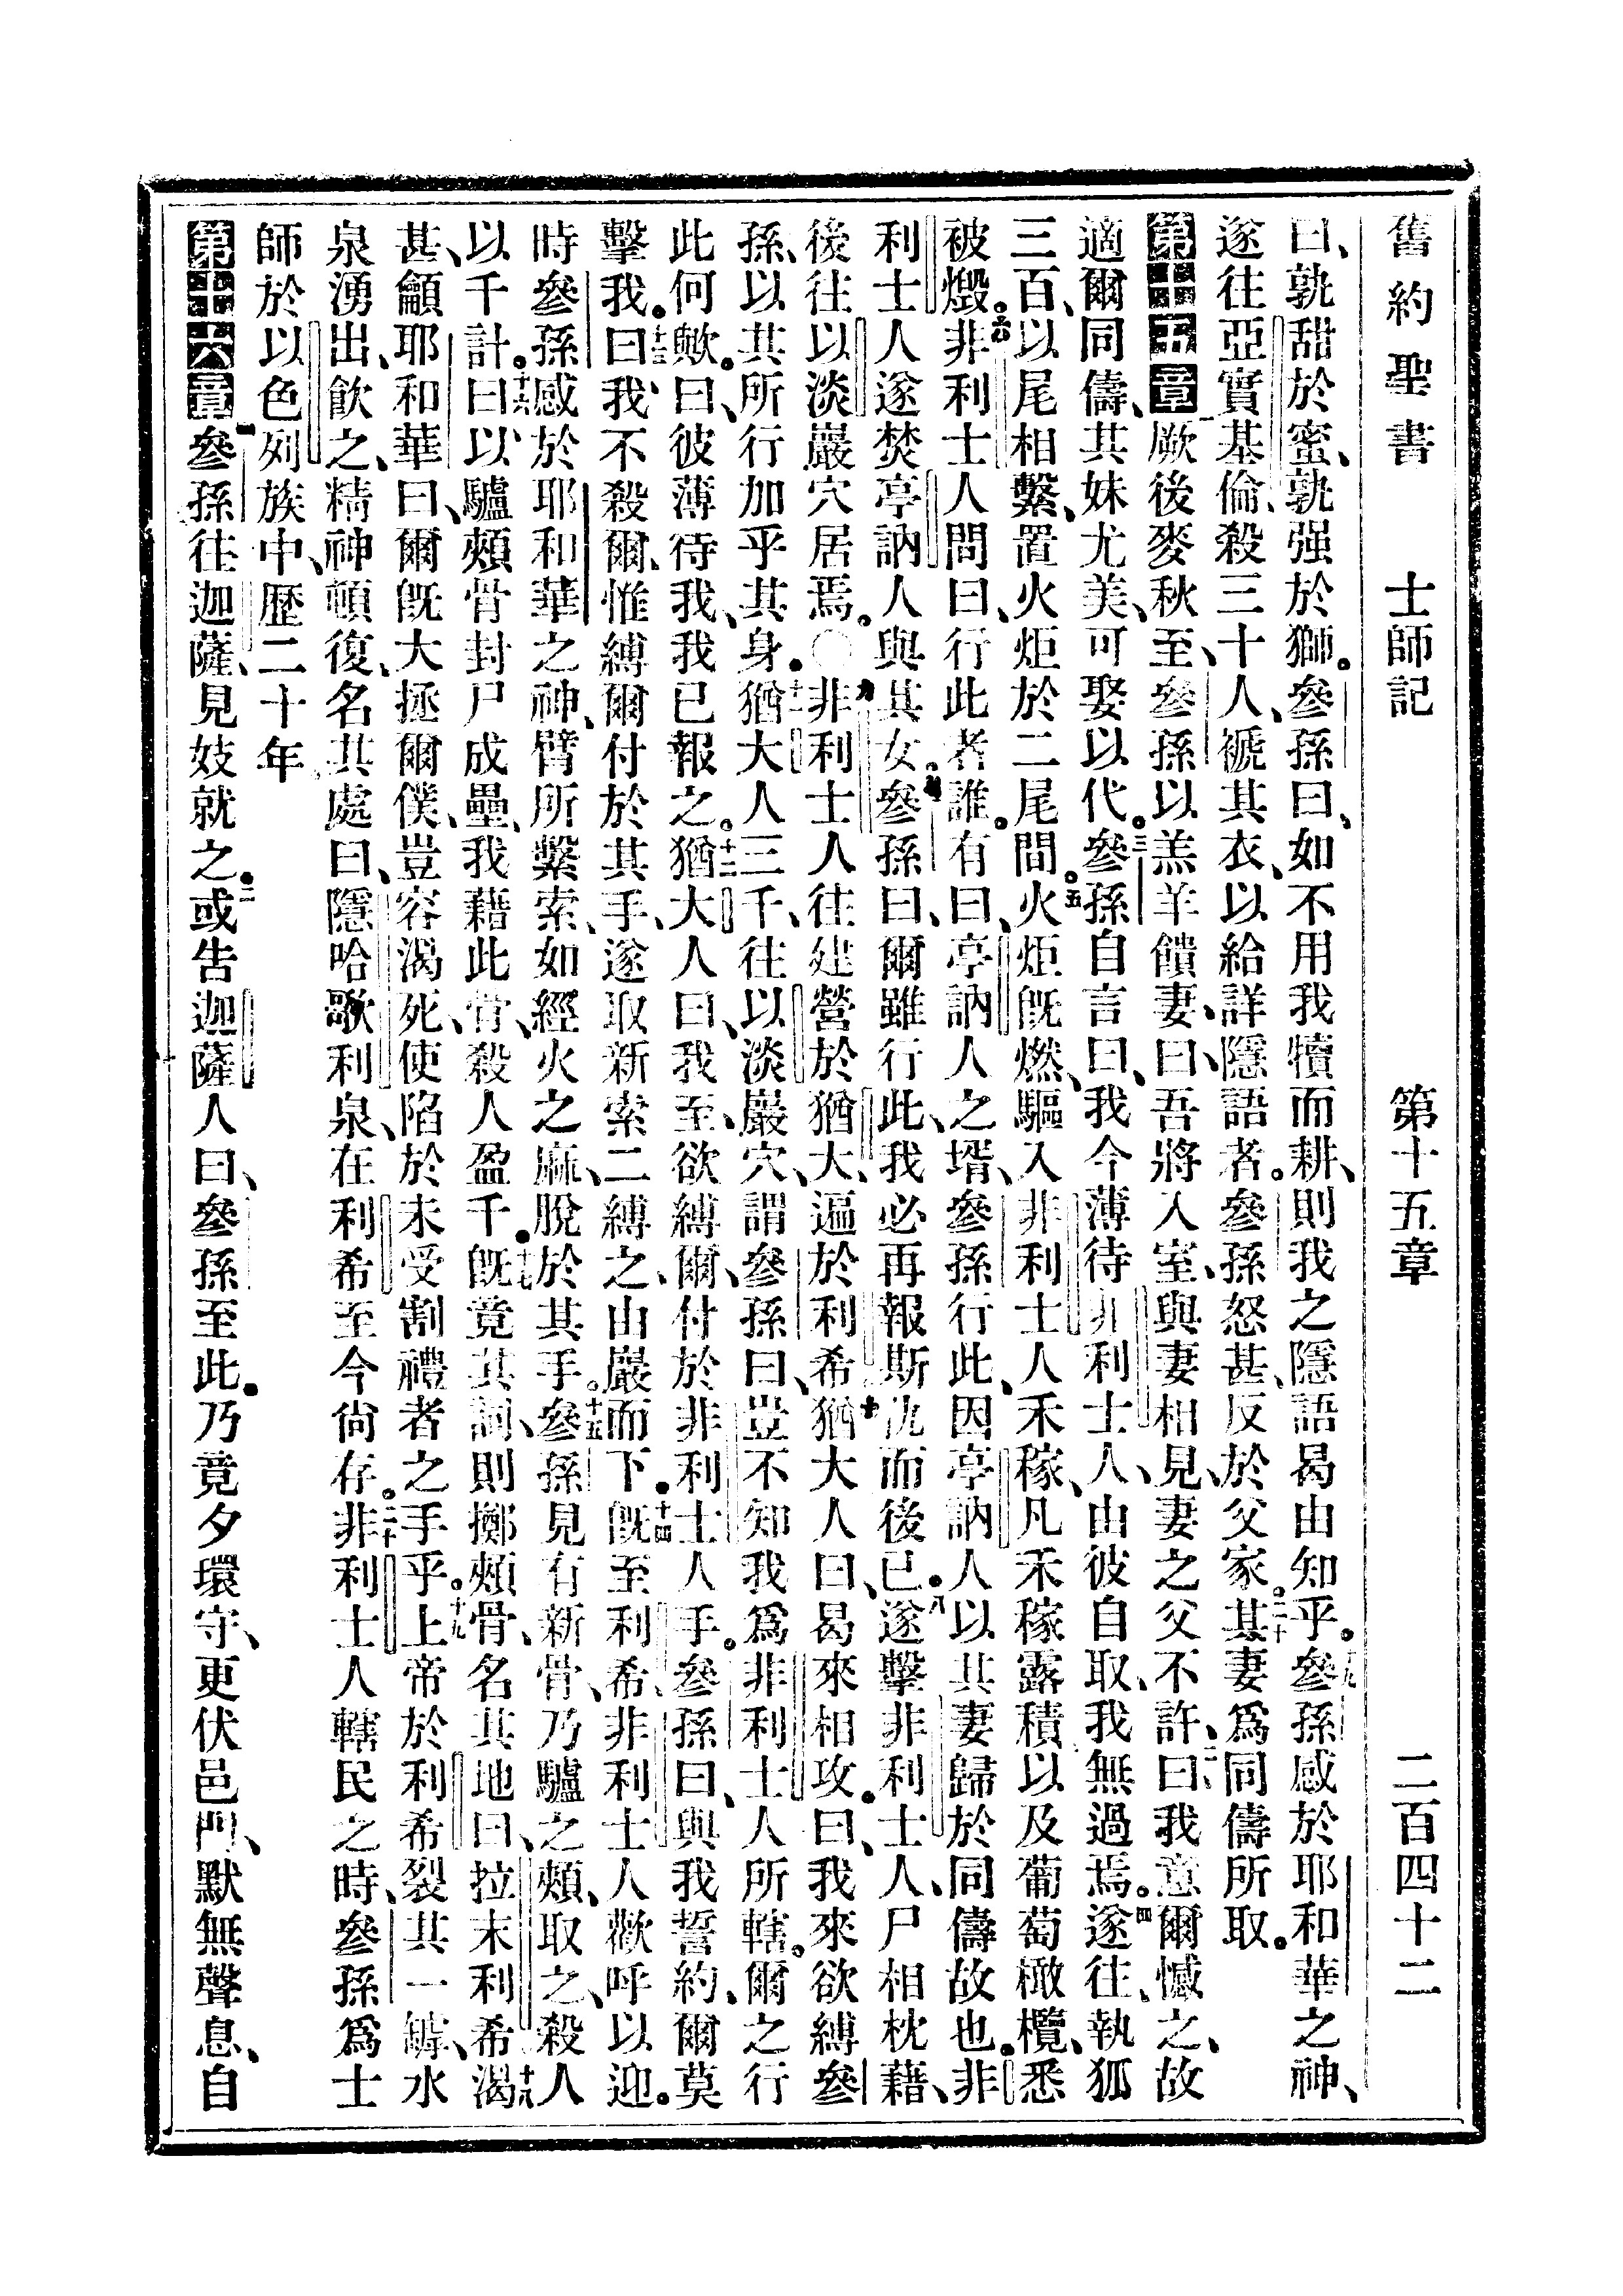 舊約聖書 士師記 第十五章 二百四十二
曰、孰甜於蜜、孰强於獅。參孫曰、如不用我犢而耕、則我之隱語曷由知乎。十九參孫感於耶和華之神、
遂往亞實基倫、殺三十人、褫其衣、以給詳隱語者。參孫怒甚、反於父家。二十其妻爲同儔所取。
第十五章 一厥後麥秋至、參孫以羔羊饋妻、曰、吾將入室、與妻相見、妻之父不許、二曰、我意爾憾之、故
適爾同儔、其妹尤美、可娶以代。三參孫自言曰、我今薄待非利士人、由彼自取、我無過焉。四遂往、執狐
三百、以尾相繫、置火炬於二尾間。五火炬旣燃、驅入非利士人禾稼、凡禾稼露積以及葡萄橄欖、悉
被燬。六非利士人問曰、行此者誰。有曰、亭訥人之壻、參孫行此、因亭訥人以其妻歸於同儔故也。非
利士人遂焚亭訥人與其女。七參孫曰、爾雖行此、我必再報斯仇而後已。八遂擊非利士人、尸相枕藉、
後往以淡巖穴居焉。○九非利士人往建營於猶大、逼於利希。十猶大人曰、曷來相攻。曰、我來欲縛參
孫、以其所行加乎其身。十一猶大人三千、往以淡巖穴、謂參孫曰、豈不知我爲非利士人所轄。爾之行
此何歟。曰、彼薄待我、我已報之。十二猶大人曰、我至、欲縛爾、付於非利士人手。參孫曰、與我誓約、爾莫
擊我。十三曰、我不殺爾、惟縛爾付於其手、遂取新索二縛之、由巖而下。十四旣至利希、非利士人歡呼以迎。
時參孫感於耶和華之神、臂所繫索、如經火之麻、脫於其手。十五參孫見有新骨、乃驢之頰、取之、殺人
以千計。十六曰、以驢頰骨封尸成壘、我藉此骨、殺人盈千。十七旣竟其詞、則擲頰骨、名其地曰、拉末利希。十八渴
甚、籲耶和華曰、爾旣大拯爾僕、豈容渴死、使陷於未受割禮者之手乎。十九上帝於利希裂其一罅、水
泉湧出、飮之、精神頓復、名其處曰、隱哈歌利泉、在利希至今尙存。二十非利士人轄民之時、參孫爲士
師於以色列族中、歷二十年。
第十六章 一參孫往迦薩、見妓就之。二或告迦薩人曰、參孫至此。乃竟夕環守、更伏邑門、默無聲息、自